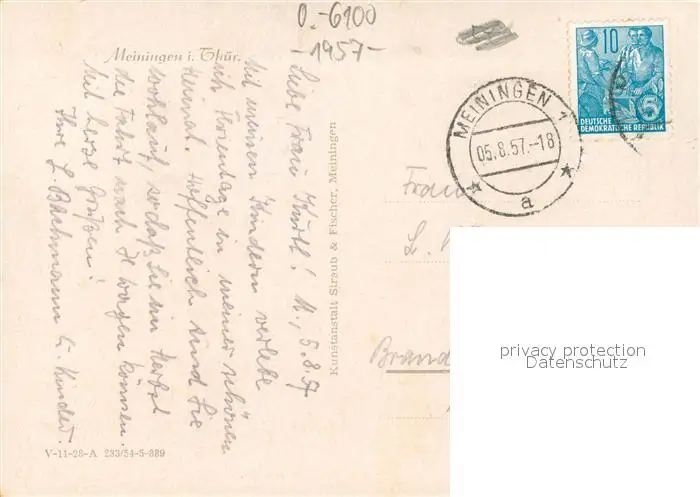 O.-6100
-1957-
Meiningen i. Thür.
Liebe Frau Kürtl! M., 5.8.57
Mit meinen Kindern verlebe
ich Ferientage in meiner schönen
Heimat. Hoffentlich sind Sie
wohlauf, sodaß Sie im Herbst
die Fahrt nach H wagen können.
Mit herzl. Grüßen!
Ihre L. Bachmann u. Kinder.
V-11-28-A 233/54-5-889
Kunstanstalt Straub & Fischer, Meiningen
MEININGEN 1
05.8.57.-18
a
10
5
DEUTSCHE
DEMOKRATISCHE REPUBLIK
Frau
L.
Brand
privacy protection
Datenschutz